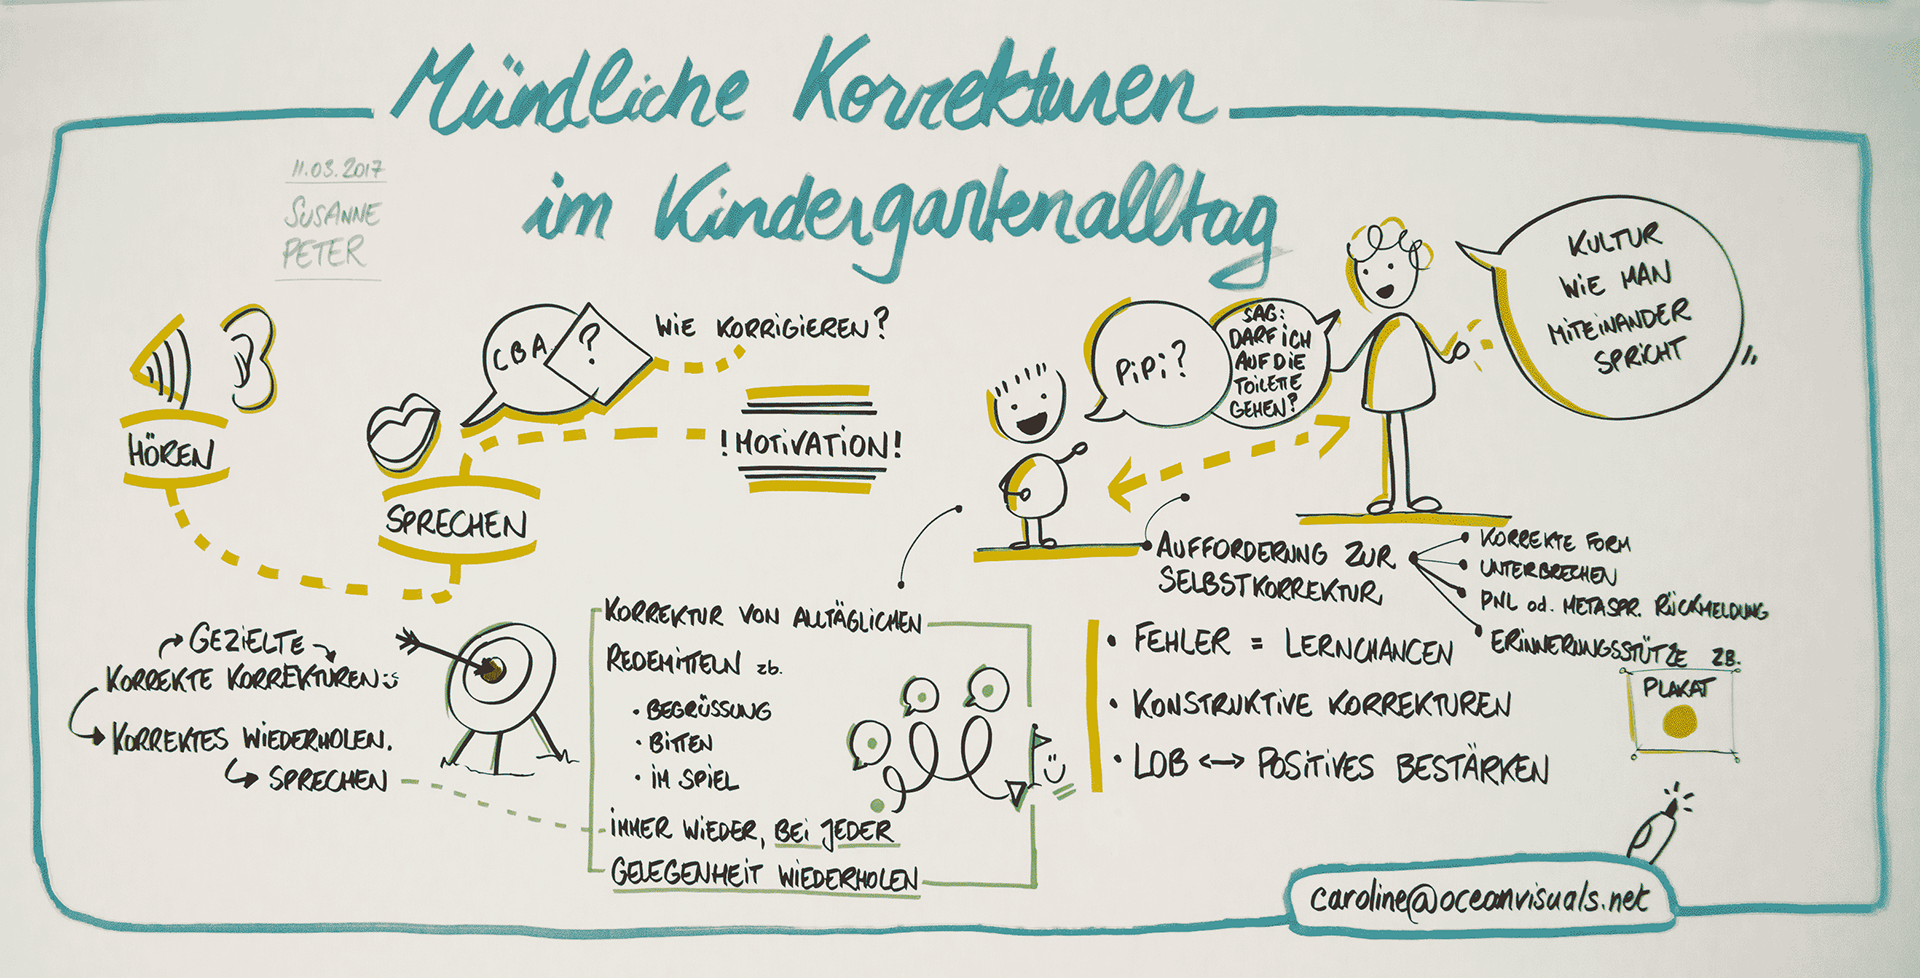 Mündliche Korrekturen
im Kindergartenalltag
11.03.2017
SUSANNE
PETER
HÖREN
SPRECHEN
CBA
?
WIE KORRIGIEREN?
!MOTIVATION!
PIPI?
SAG:
DARF ICH
AUF DIE
TOILETTE
GEHEN?
KULTUR
WIE MAN
MITEINANDER
SPRICHT
AUFFORDERUNG ZUR
SELBSTKORREKTUR
KORREKTE FORM
UNTERBRECHEN
PNL od. METASPR. RÜCKMELDUNG
ERINNERUNGSSTÜTZE ZB.
PLAKAT
GEZIELTE
KORREKTE KORREKTUREN
KORREKTES WIEDERHOLEN.
SPRECHEN
KORREKTUR VON ALLTÄGLICHEN
REDEMITTELN zb.
• BEGRÜSSUNG
• BITTEN
• IM SPIEL
IMMER WIEDER, BEI JEDER
GELEGENHEIT WIEDERHOLEN
• FEHLER = LERNCHANCEN
• KONSTRUKTIVE KORREKTUREN
• LOB <-> POSITIVES BESTÄRKEN
caroline@oceanvisuals.net